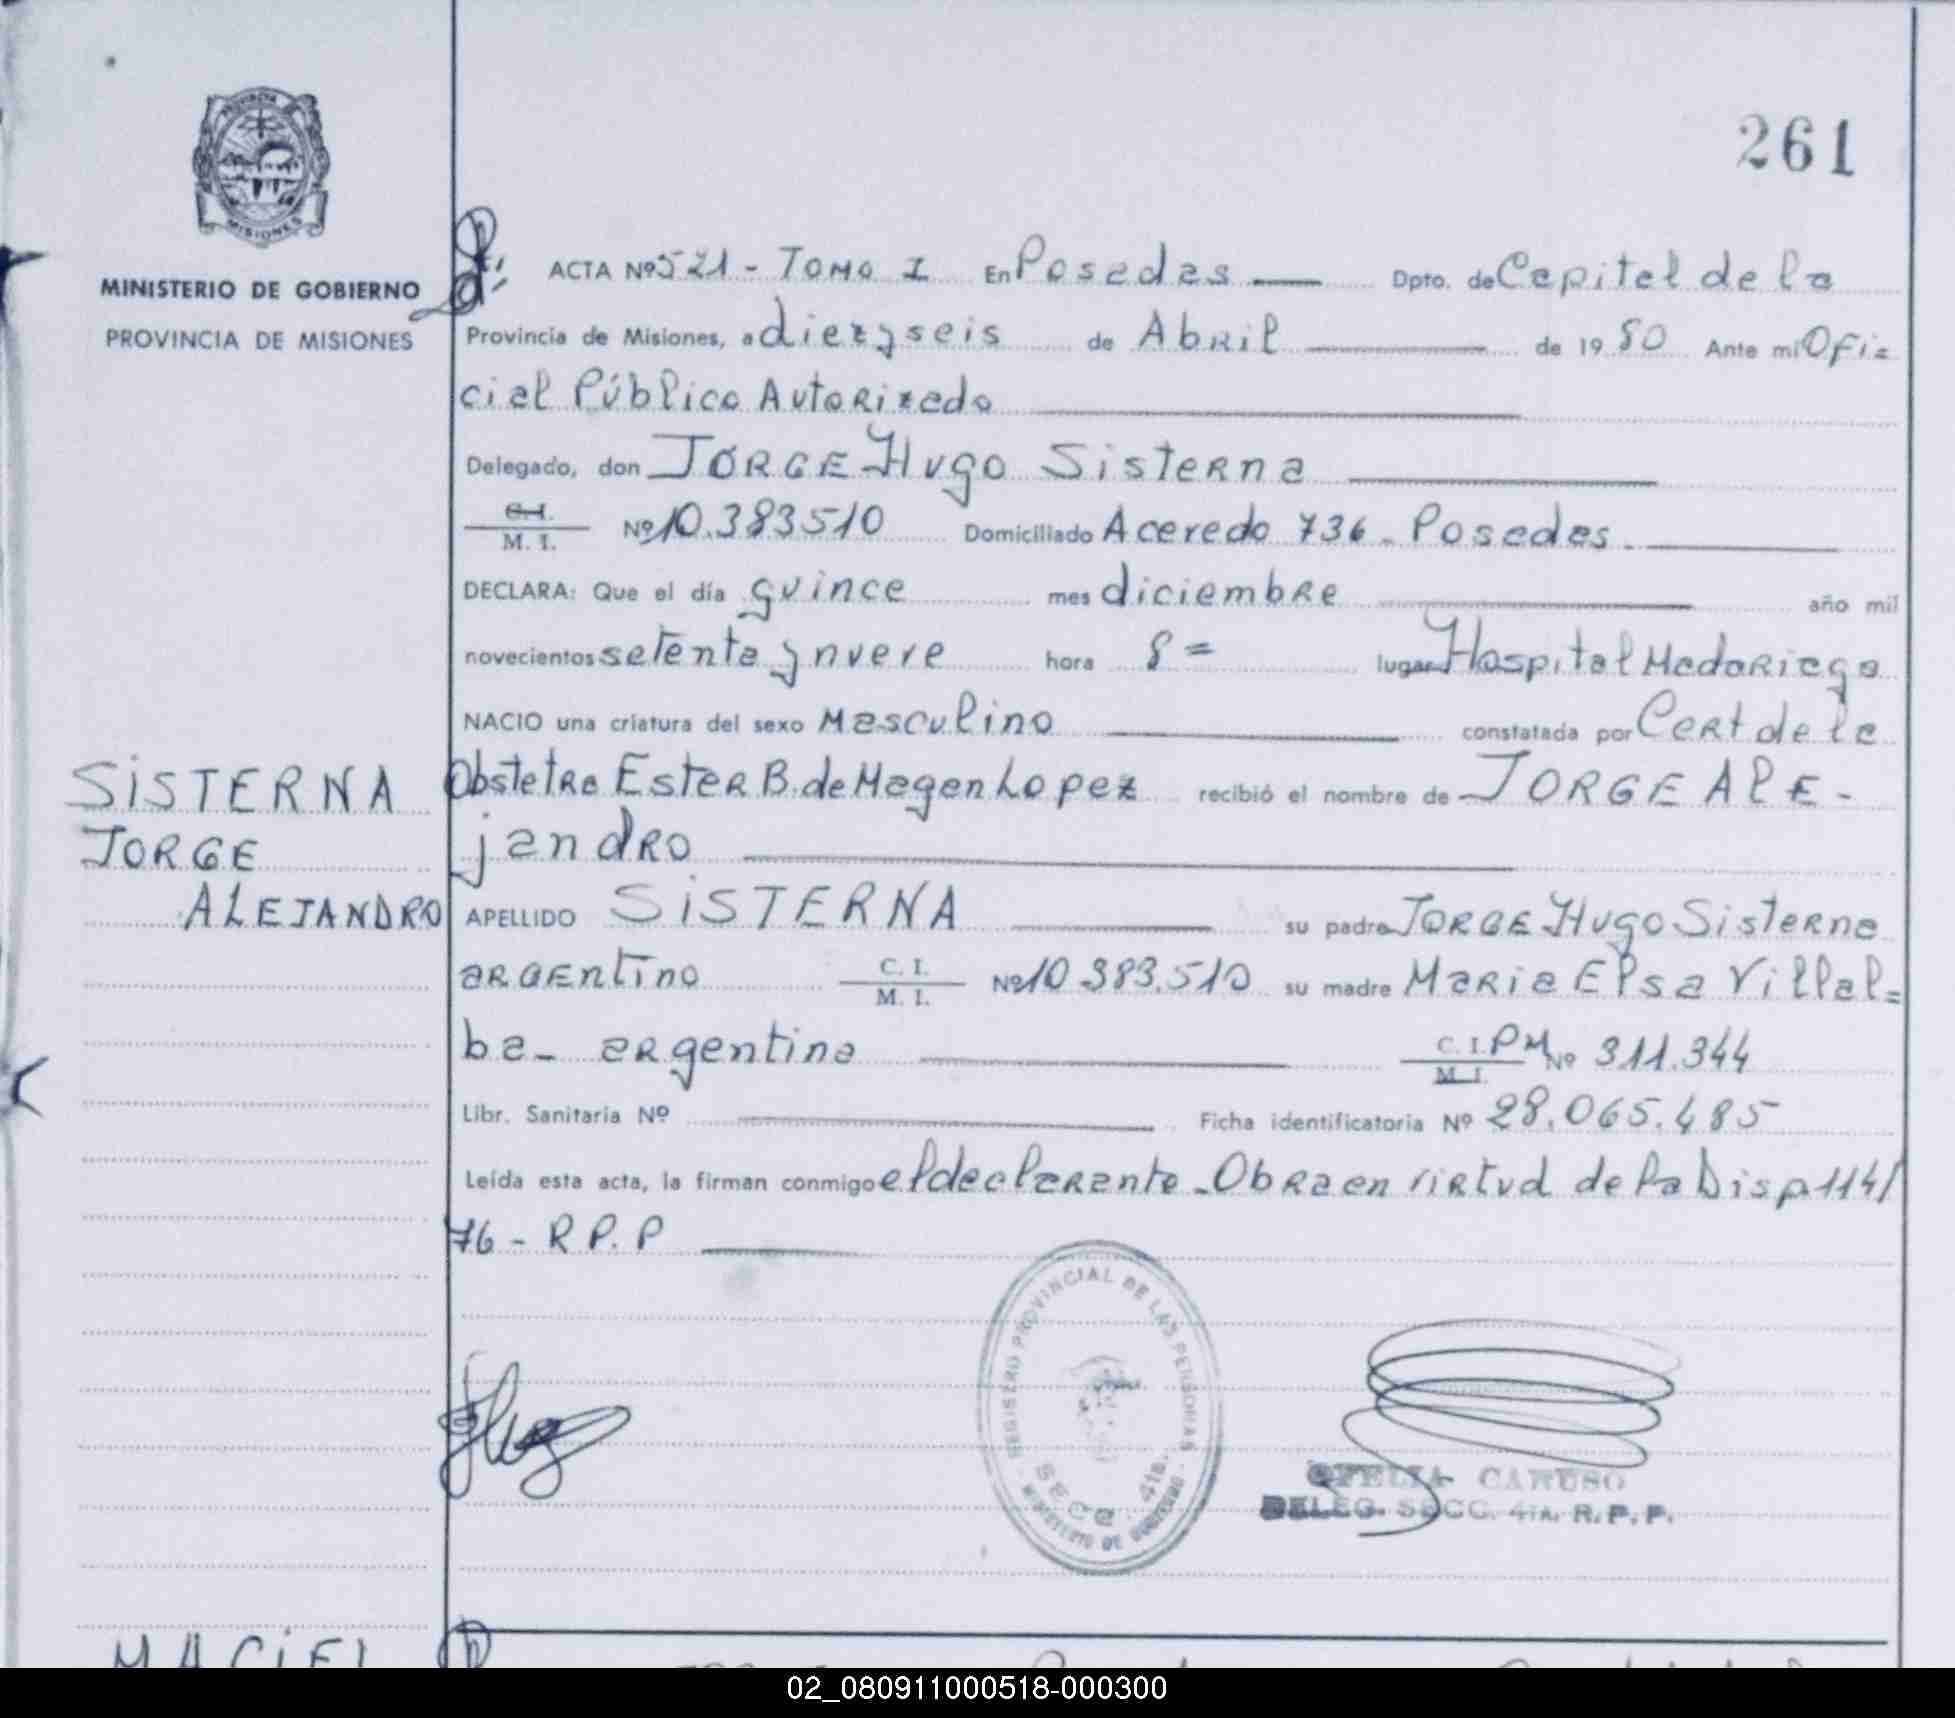 261
PROVINCIA DE
MISIONES
MINISTERIO DE GOBIERNO
PROVINCIA DE MISIONES
ACTA Nº 521 - Tomo I En Posadas Dpto. de Capital de la
Provincia de Misiones, a diez y seis de Abril de 1980 Ante mi Ofi=
cial Público Autorizado
Delegado, don Jorge Hugo Sisterna
C.I.
M. I. Nº 10.383510 Domiciliado Aceredo 736 - Posadas.
DECLARA: Que el día quince mes diciembre año mil
novecientos setenta y nueve hora 8 = lugar Hospital Madariaga
NACIO una criatura del sexo Masculino constatada por Cert de la
Obstetra Ester B. de Magen Lopez recibió el nombre de JORGE Ale-
jandro
SISTERNA
JORGE
ALEJANDRO
APELLIDO SISTERNA su padre Jorge Hugo Sisterna
argentino C. I. M. I. Nº 10.383.510 su madre Maria Elsa Villal=
ba - argentina C. I. PM M I. Nº 311.344
Libr. Sanitaria Nº Ficha identificatoria Nº 28.065.485
Leída esta acta, la firman conmigo el declarante - Obra en virtud de la Disp 114/
76 - R P. P
REGISTRO PROVINCIAL DE LAS PERSONAS
SECC. 4ta.
MINISTERIO DE GOBIERNO
OFELIA CARUSO
DELEG. SECC. 4TA. R. P. P.
MACIEL
02_080911000518-000300